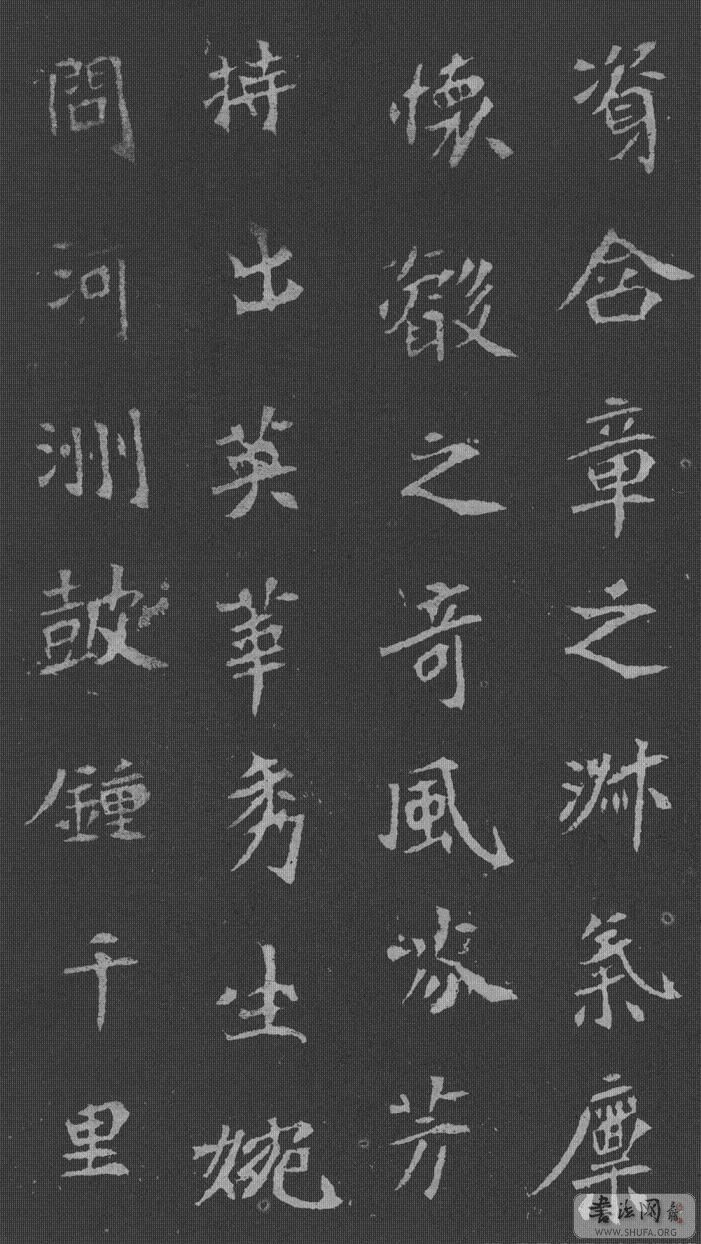 資含章之淑氣稟
懷叡之奇風芳
持出英華秀生婉
問河洲皷鍾千里
書法网
WWW.SHUFA.ORG